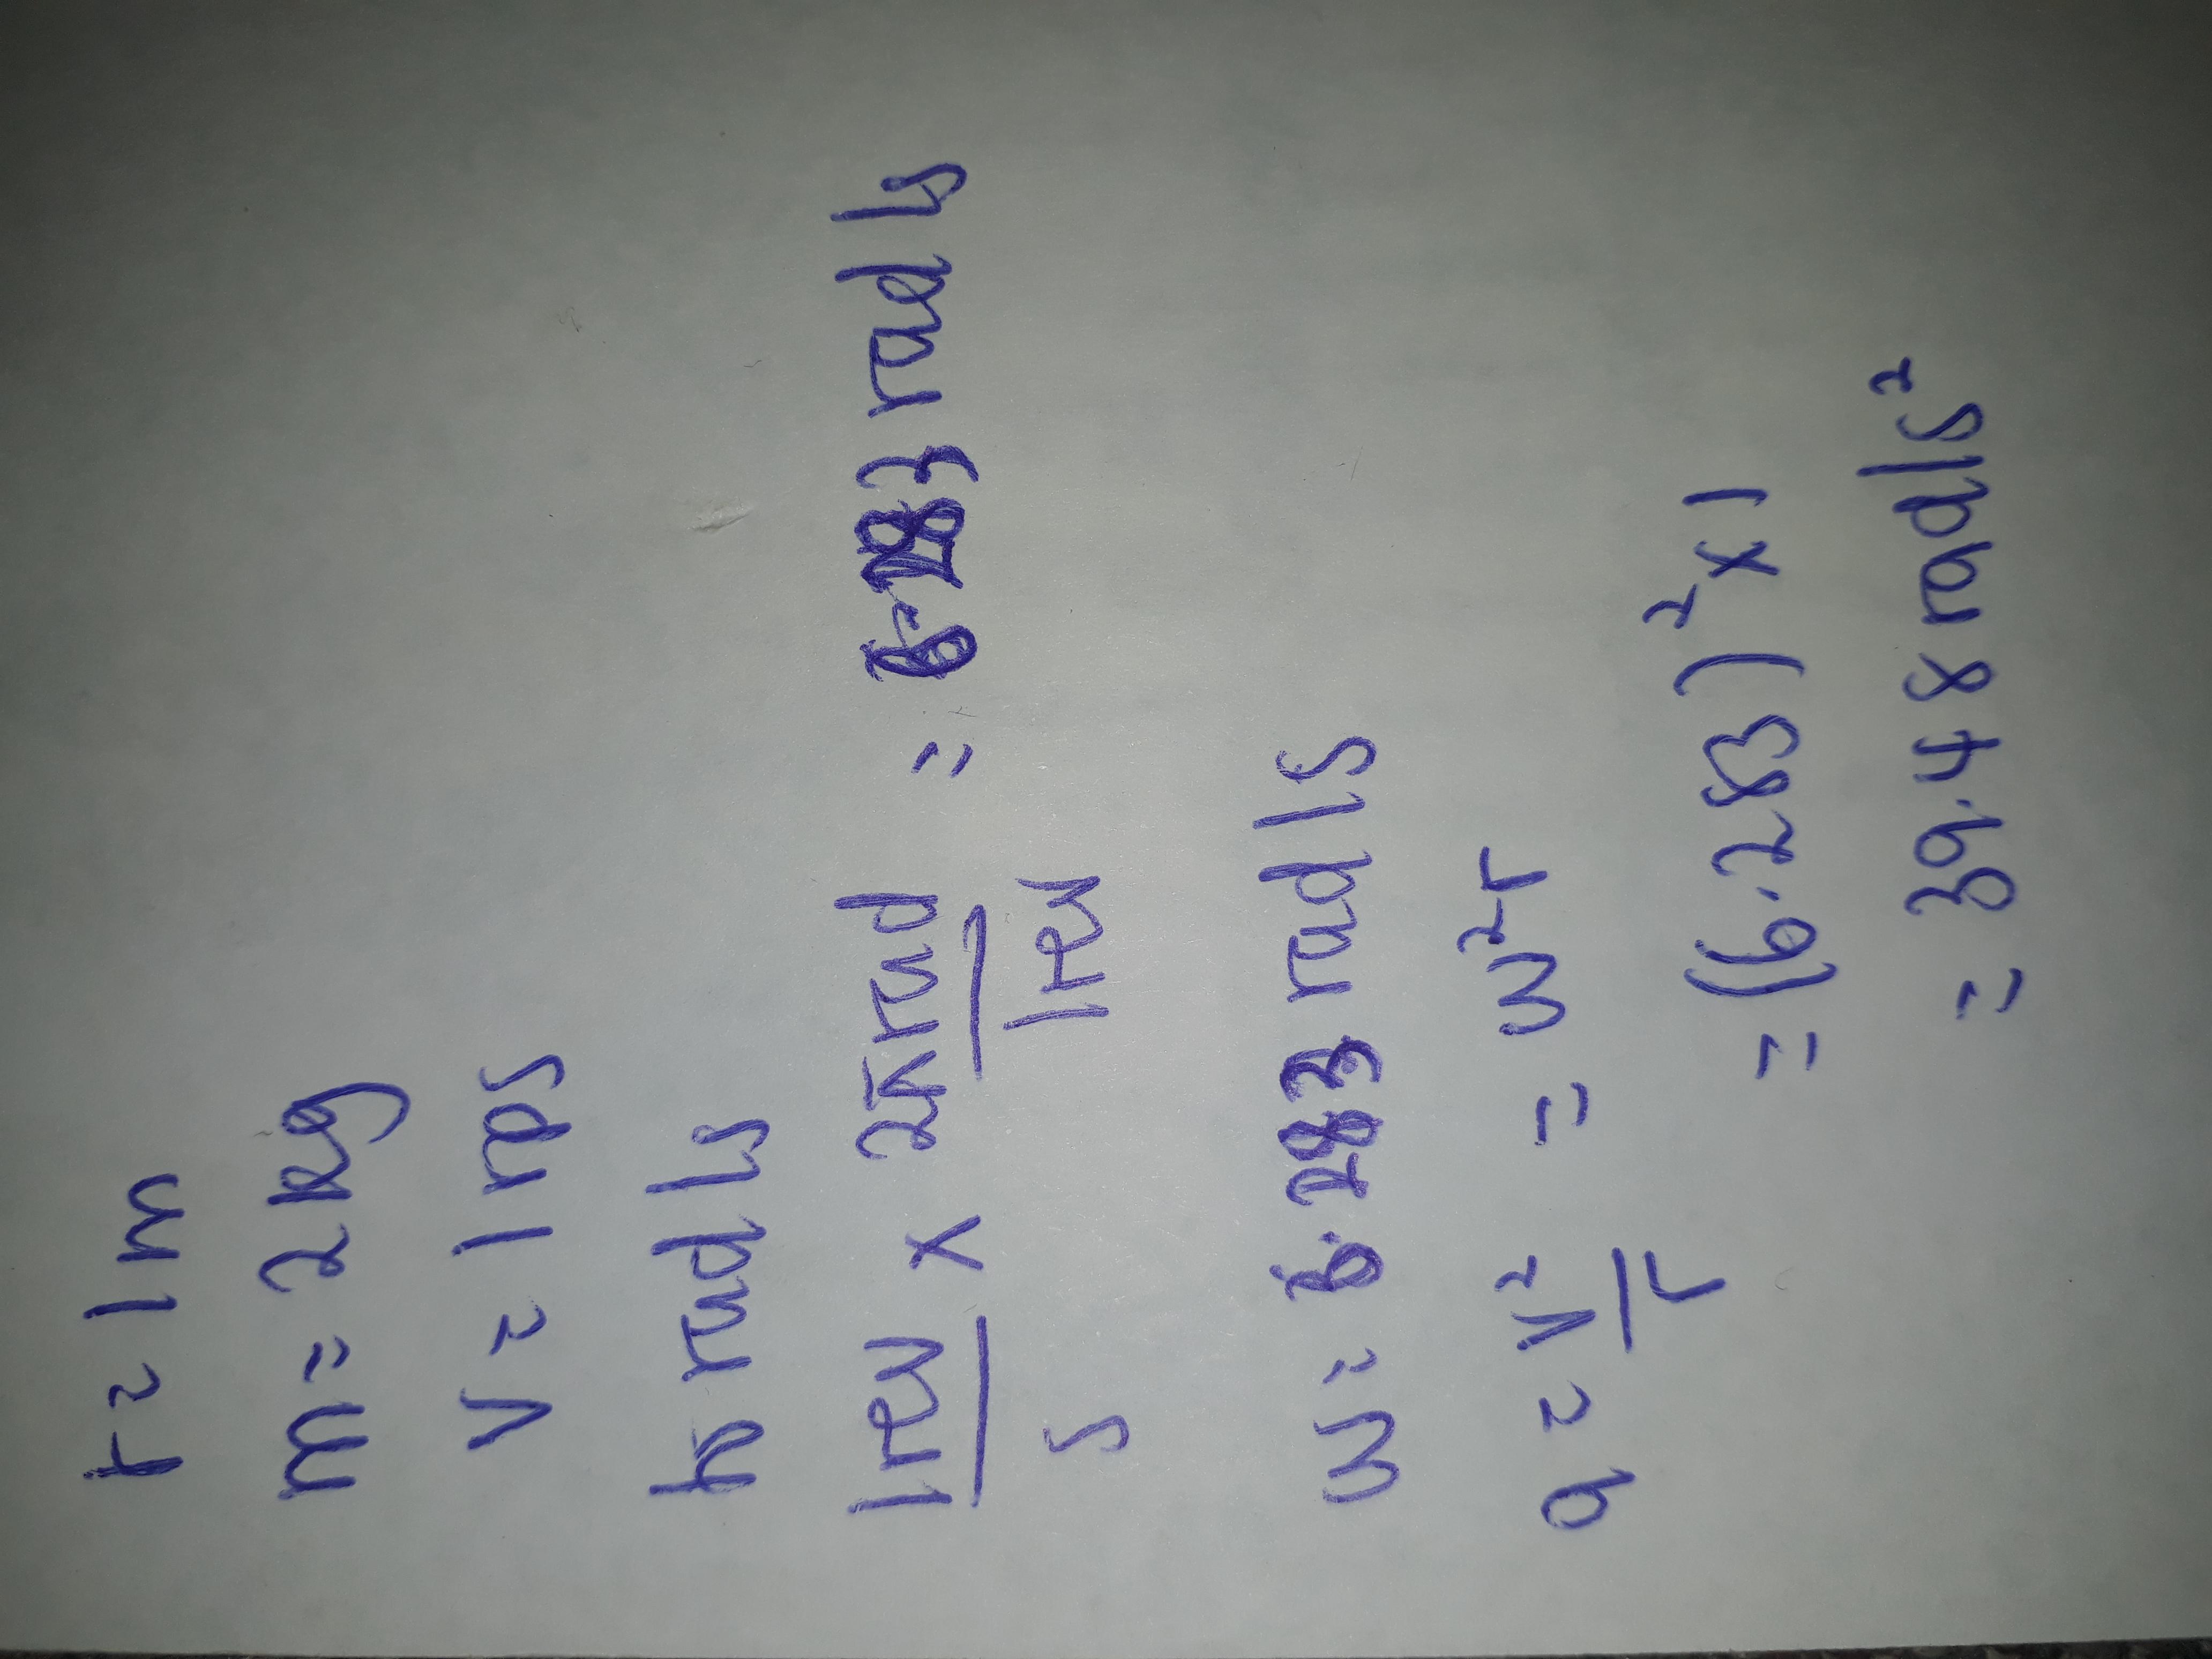 r = 1m
m = 2 kg
V = 1 rps
to rad/s
1 rev/s x 2π rad/1 rev = 6.283 rad/s
ω = 6.283 rad/s
a = v²/r = ω²r
= (6.283)² x 1
= 39.48 rad/s²